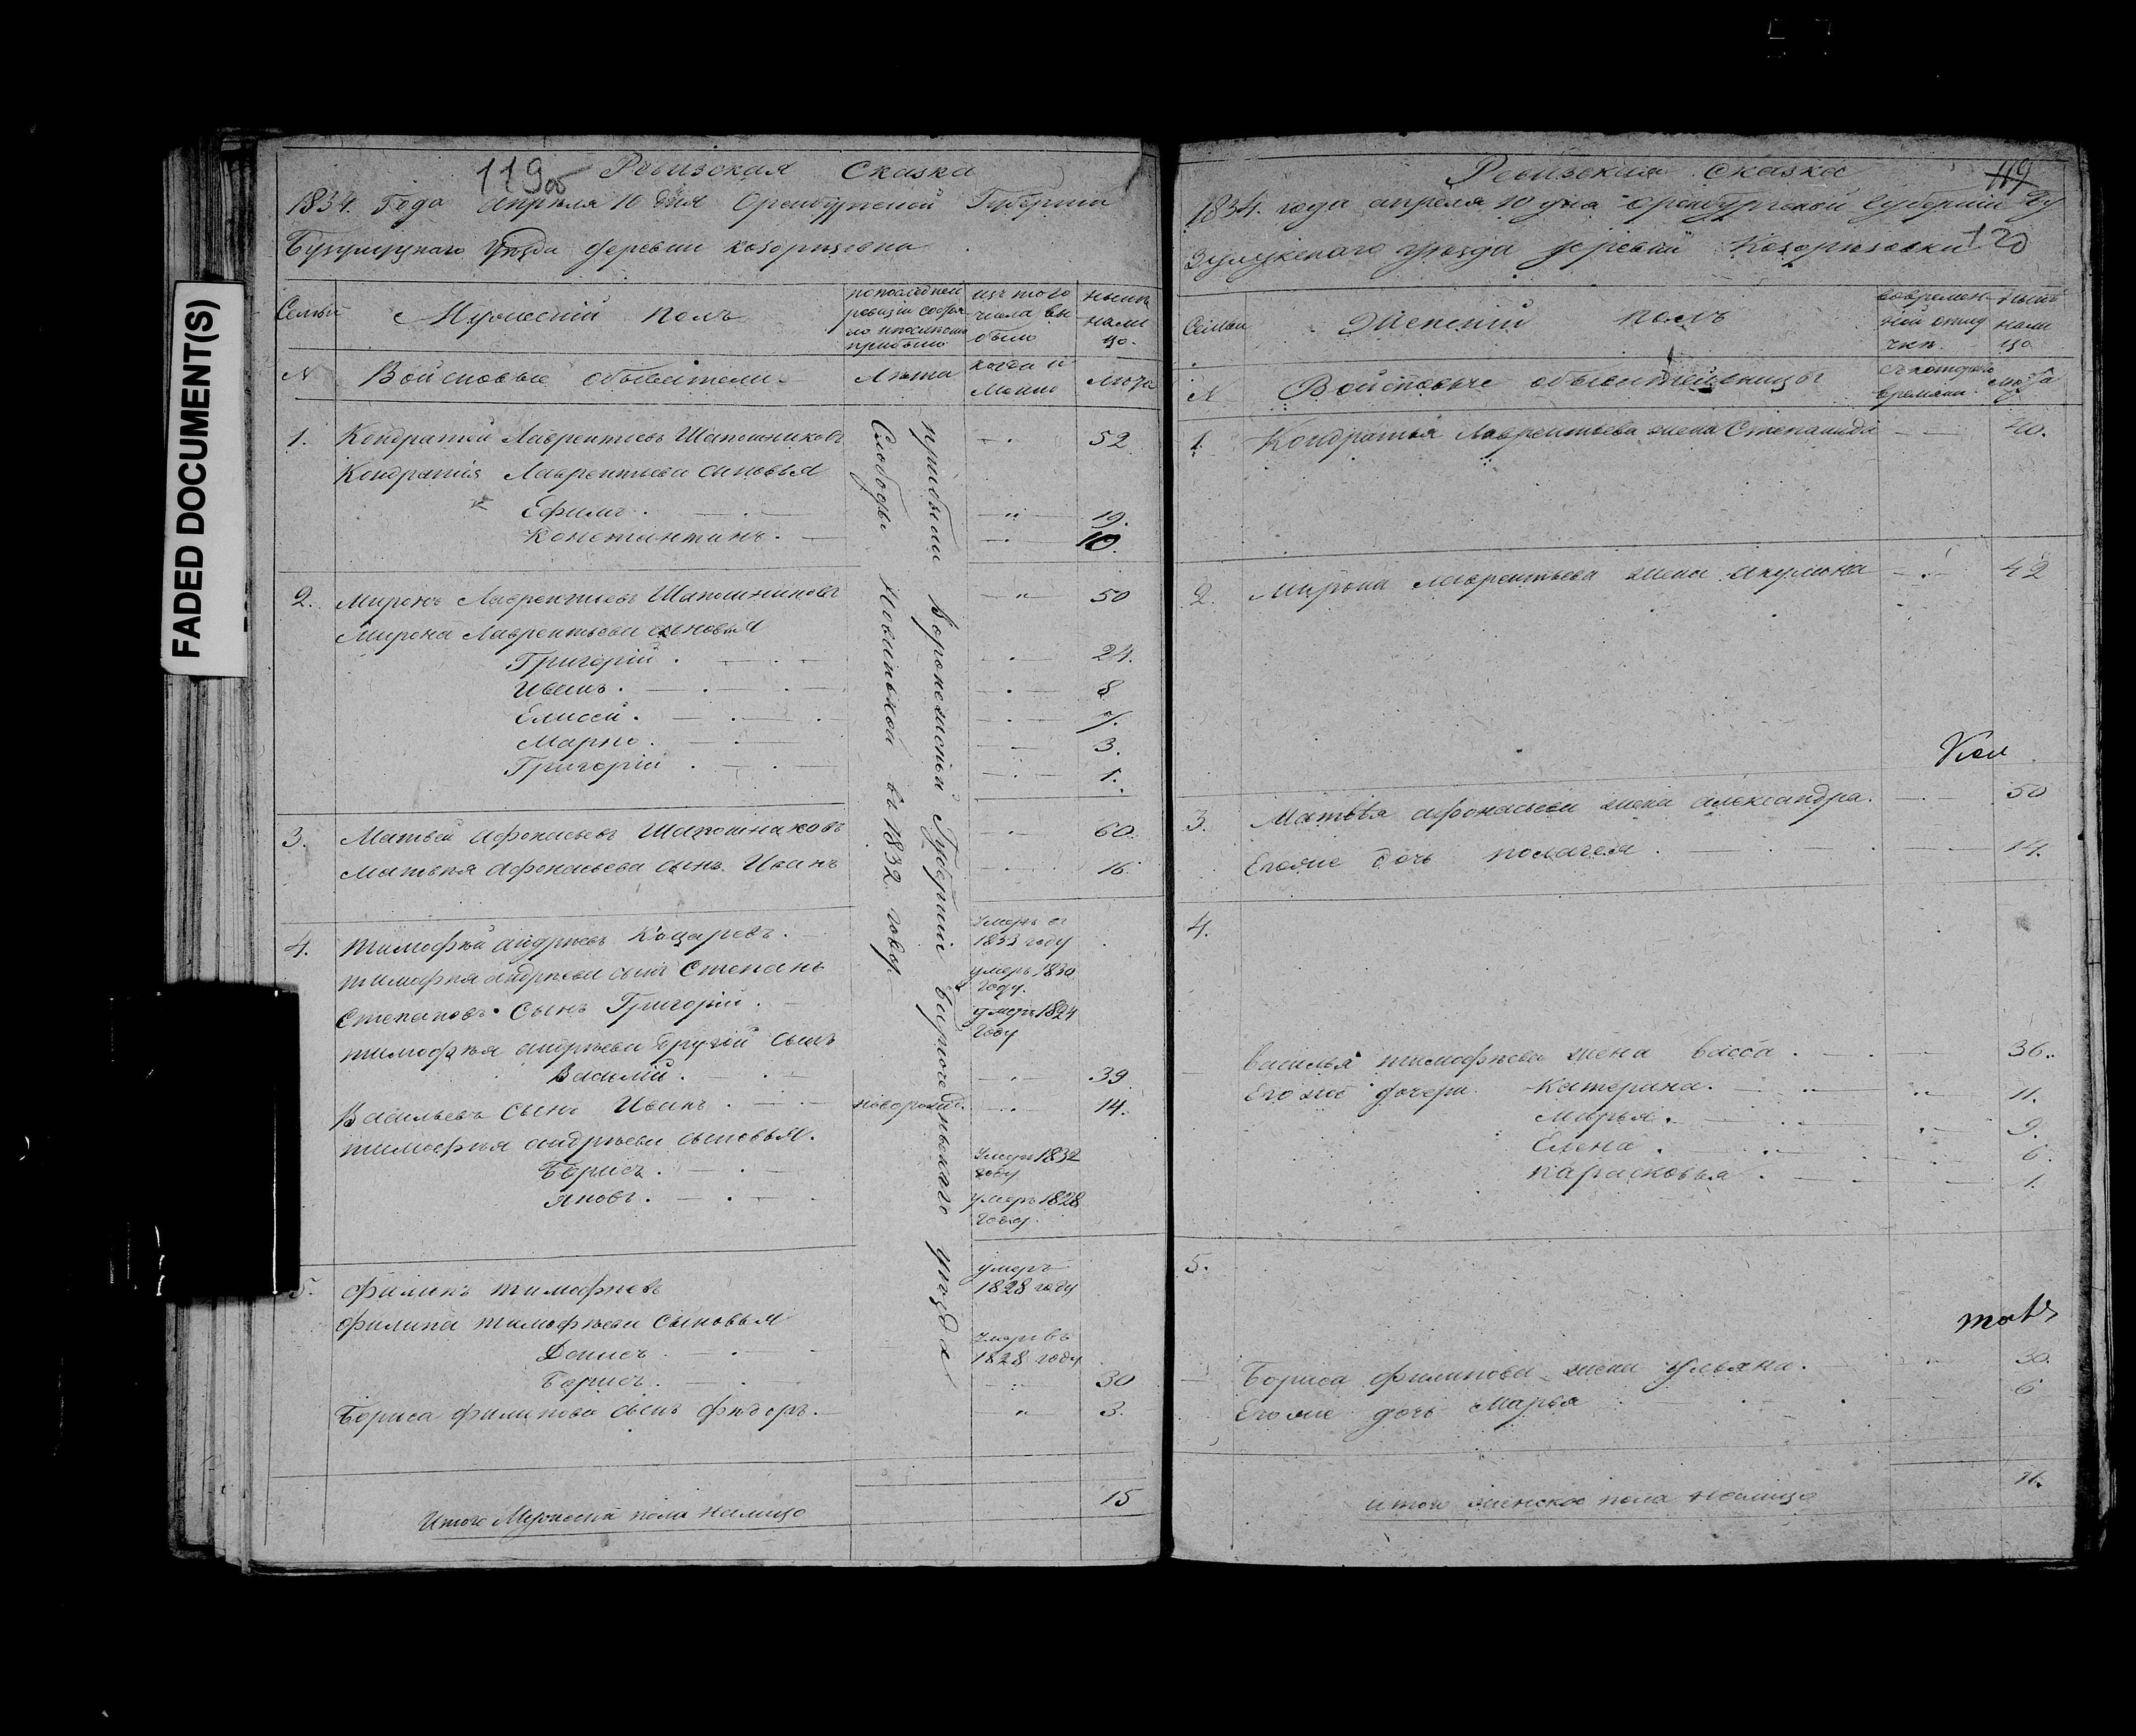 FADED DOCUMENT(S)
119об
Ревизская Сказка
1834. Года Апреля 10 дня Оренбургской Губернии
Бузулуцкаго Уезда деревни
Семьи
Мужеский полъ
по последней
ревизии состоя
ло и после того
прибыло
изъ того
числа вы
было
ныне
нали
цо.
N
Войсковые обыватели
Лета
когда и
Лета
1. Кондратей Лаврентьевъ Шапошниковъ 52
Кондратия Лаврентьева сыновья
Ефимъ. 19.
Константинъ. 10.
2. Миронъ Лаврентьевъ Шапошниковъ 50
Мирона Лаврентьева сыновья
Григорій. 24.
Иванъ. 8
Елисей. 7.
Марко. 3.
Григорій. 1.
3. Матвей Афонасьевъ Шапошниковъ 60.
Матвея Афонасьева сынъ Иванъ 16.
4. Тимофей андреевъ умеръ въ 1833 году
тимофея андреева сынъ Степанъ умеръ 1830 году.
Степановъ сынъ Григорій. умеръ 1824 году
тимофея андреева другой сынъ
Василій. 39
Васильевъ сынъ Иванъ. 14.
тимофея андреева сыновья.
Борисъ. умеръ 1832 году
Яковъ. умеръ 1828 году.
5. Филипъ тимофеевъ умеръ 1828 году
Филипа тимофеева сыновья
Денисъ. умеръ въ 1828 году
Борисъ. 30
Бориса филипова сынъ федоръ. 3.
прибыли Воронежской Губернии уезда
Слободы въ 1832 году.
Итого Мужеска пола налицо 15
Ревизская сказка
119
120
1834. года апреля 10 дня Оренбургской губернии Бу
зулуцкаго уезда деревни
Семьи
Женский полъ
во времен
ной отлуч
ке.
ныне
нали
цо
N
Войсковые обывательницы
съ котораго
времяни.
лета
1. Кондратья Лаврентьева жена Степанида 40.
2. Мирона Лаврентьева жена Акулина 42
3. Матвея афонасьева жена александра. 50
Егоже дочь 14.
4.
Василья тимофеева жена васса. 36.
Егоже дочери Катерина. 11.
Марья. 9.
Елена. 6.
парасковья. 1.
5.
Бориса филипова жена ульяна. 30.
Егоже дочь Марья 6
итого женска пола налицо 11.